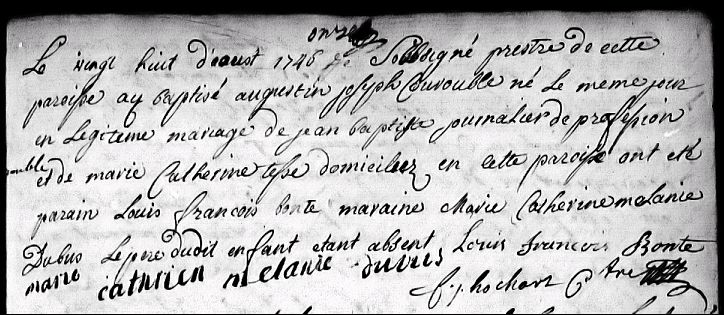 Le vingt huit d'aoust 1746 je Soussigné prestre de cette
paroisse ay baptisé augustin joseph Durouble né Le meme jour
en Legiteme mariage de jean baptiste journalier de profession
et de marie Catherine tesse domiciliez en cette paroisse ont eté
parain Louis francois bonte maraine Marie Catherine melanie
Dubus Le pere dudit enfant etant absent Louis francois Bonte
marie cathrien melanie dubus
hochart